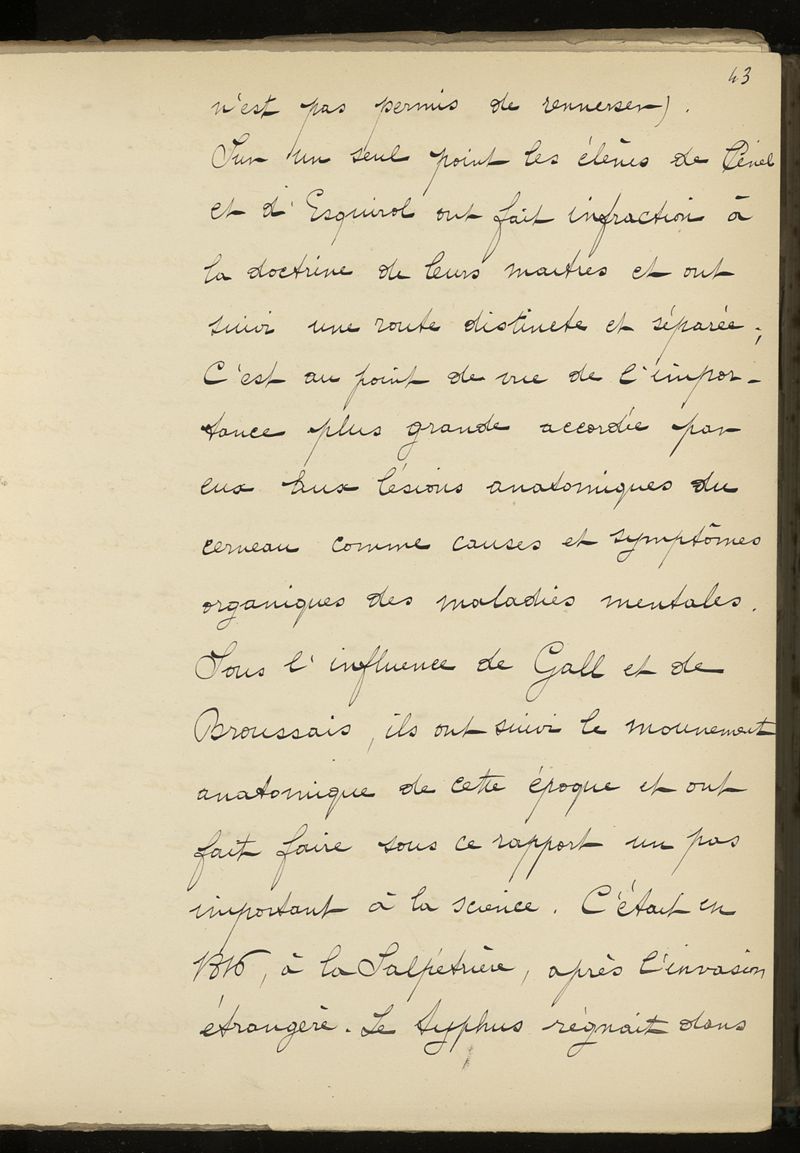 43
n'est pas permis de renverser).
Sur un seul point les élèves de Pinel
et d'Esquirol ont fait infraction à
la doctrine de leurs maitres et ont
suivi une route distincte et séparée ;
C'est au point de vue de l'impor-
tance plus grande accordée par
eux aux lésions anatomiques du
cerveau comme causes et symptômes
organiques des maladies mentales.
Sous l'influence de Gall et de
Broussais, ils ont suivi le mouvement
anatomique de cette époque et ont
fait faire sous ce rapport un pas
important à la science. C'était en
, à la Salpétrière, après l'invasion
étrangère. Le typhus régnait dans